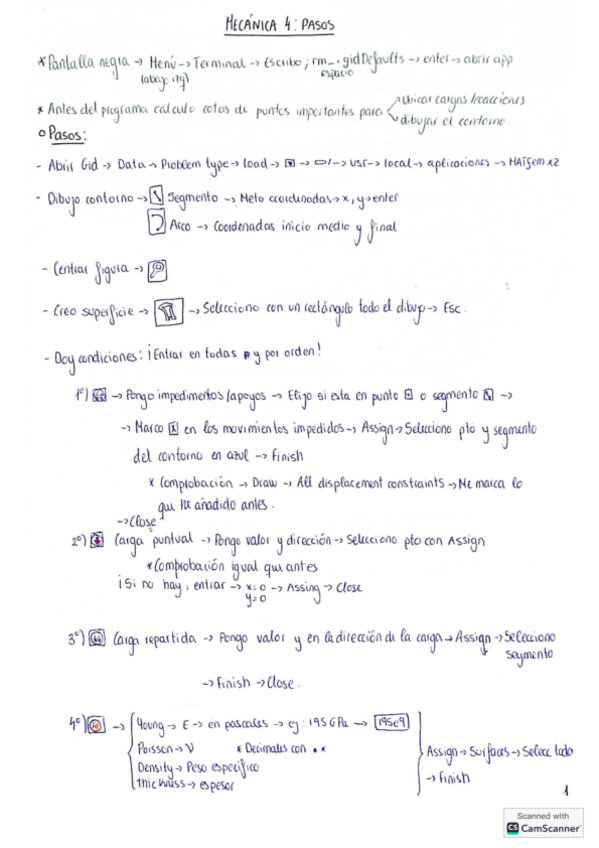 MECÁNICA 4: PASOS
* Pantalla negra → Menú → Terminal → Escribo; rm_.gidDefaults → enter → abrir app
(abajo izq) espacio
* Antes del programa calculo cotas de puntos importantes para ubicar cargas/reacciones
dibujar el contorno
o Pasos:
- Abrir Gid → Data → Problem type → load → → → usr → local → aplicaciones → MATfem x2
- Dibujo contorno → Segmento → Meto coordenadas → x, y → enter
Arco → Coordenadas inicio medio y final
- Centrar figura →
- Creo superficie → → Selecciono con un rectángulo todo el dibujo → Esc.
- Doy condiciones: ¡Entrar en todas y por orden!
1º) → Pongo impedimentos/apoyos → Elijo si esta en punto o segmento →
→ Marco X en los movimientos impedidos → Assign → Selecciono pto y segmento
del contorno en azul → Finish
* Comprobación → Draw → All displacement constraints → Me marca lo
que he añadido antes.
→ Close
2º) Carga puntual → Pongo valor y dirección → Selecciono pto con Assign
* Comprobación igual que antes
¡Si no hay, entrar → x=0 → Assing → Close
y=0
3º) Carga repartida → Pongo valor y en la dirección de la carga → Assign → Selecciono
segmento
→ Finish → Close.
4º) → Young → E → en pascales → ej: 195 GPa → 195e9
Poisson → ν * Decimales con . *
Density → Peso específico
Thickness → espesor
Assign → Surfaces → Selecc todo
→ Finish
1
Scanned with
CS CamScanner